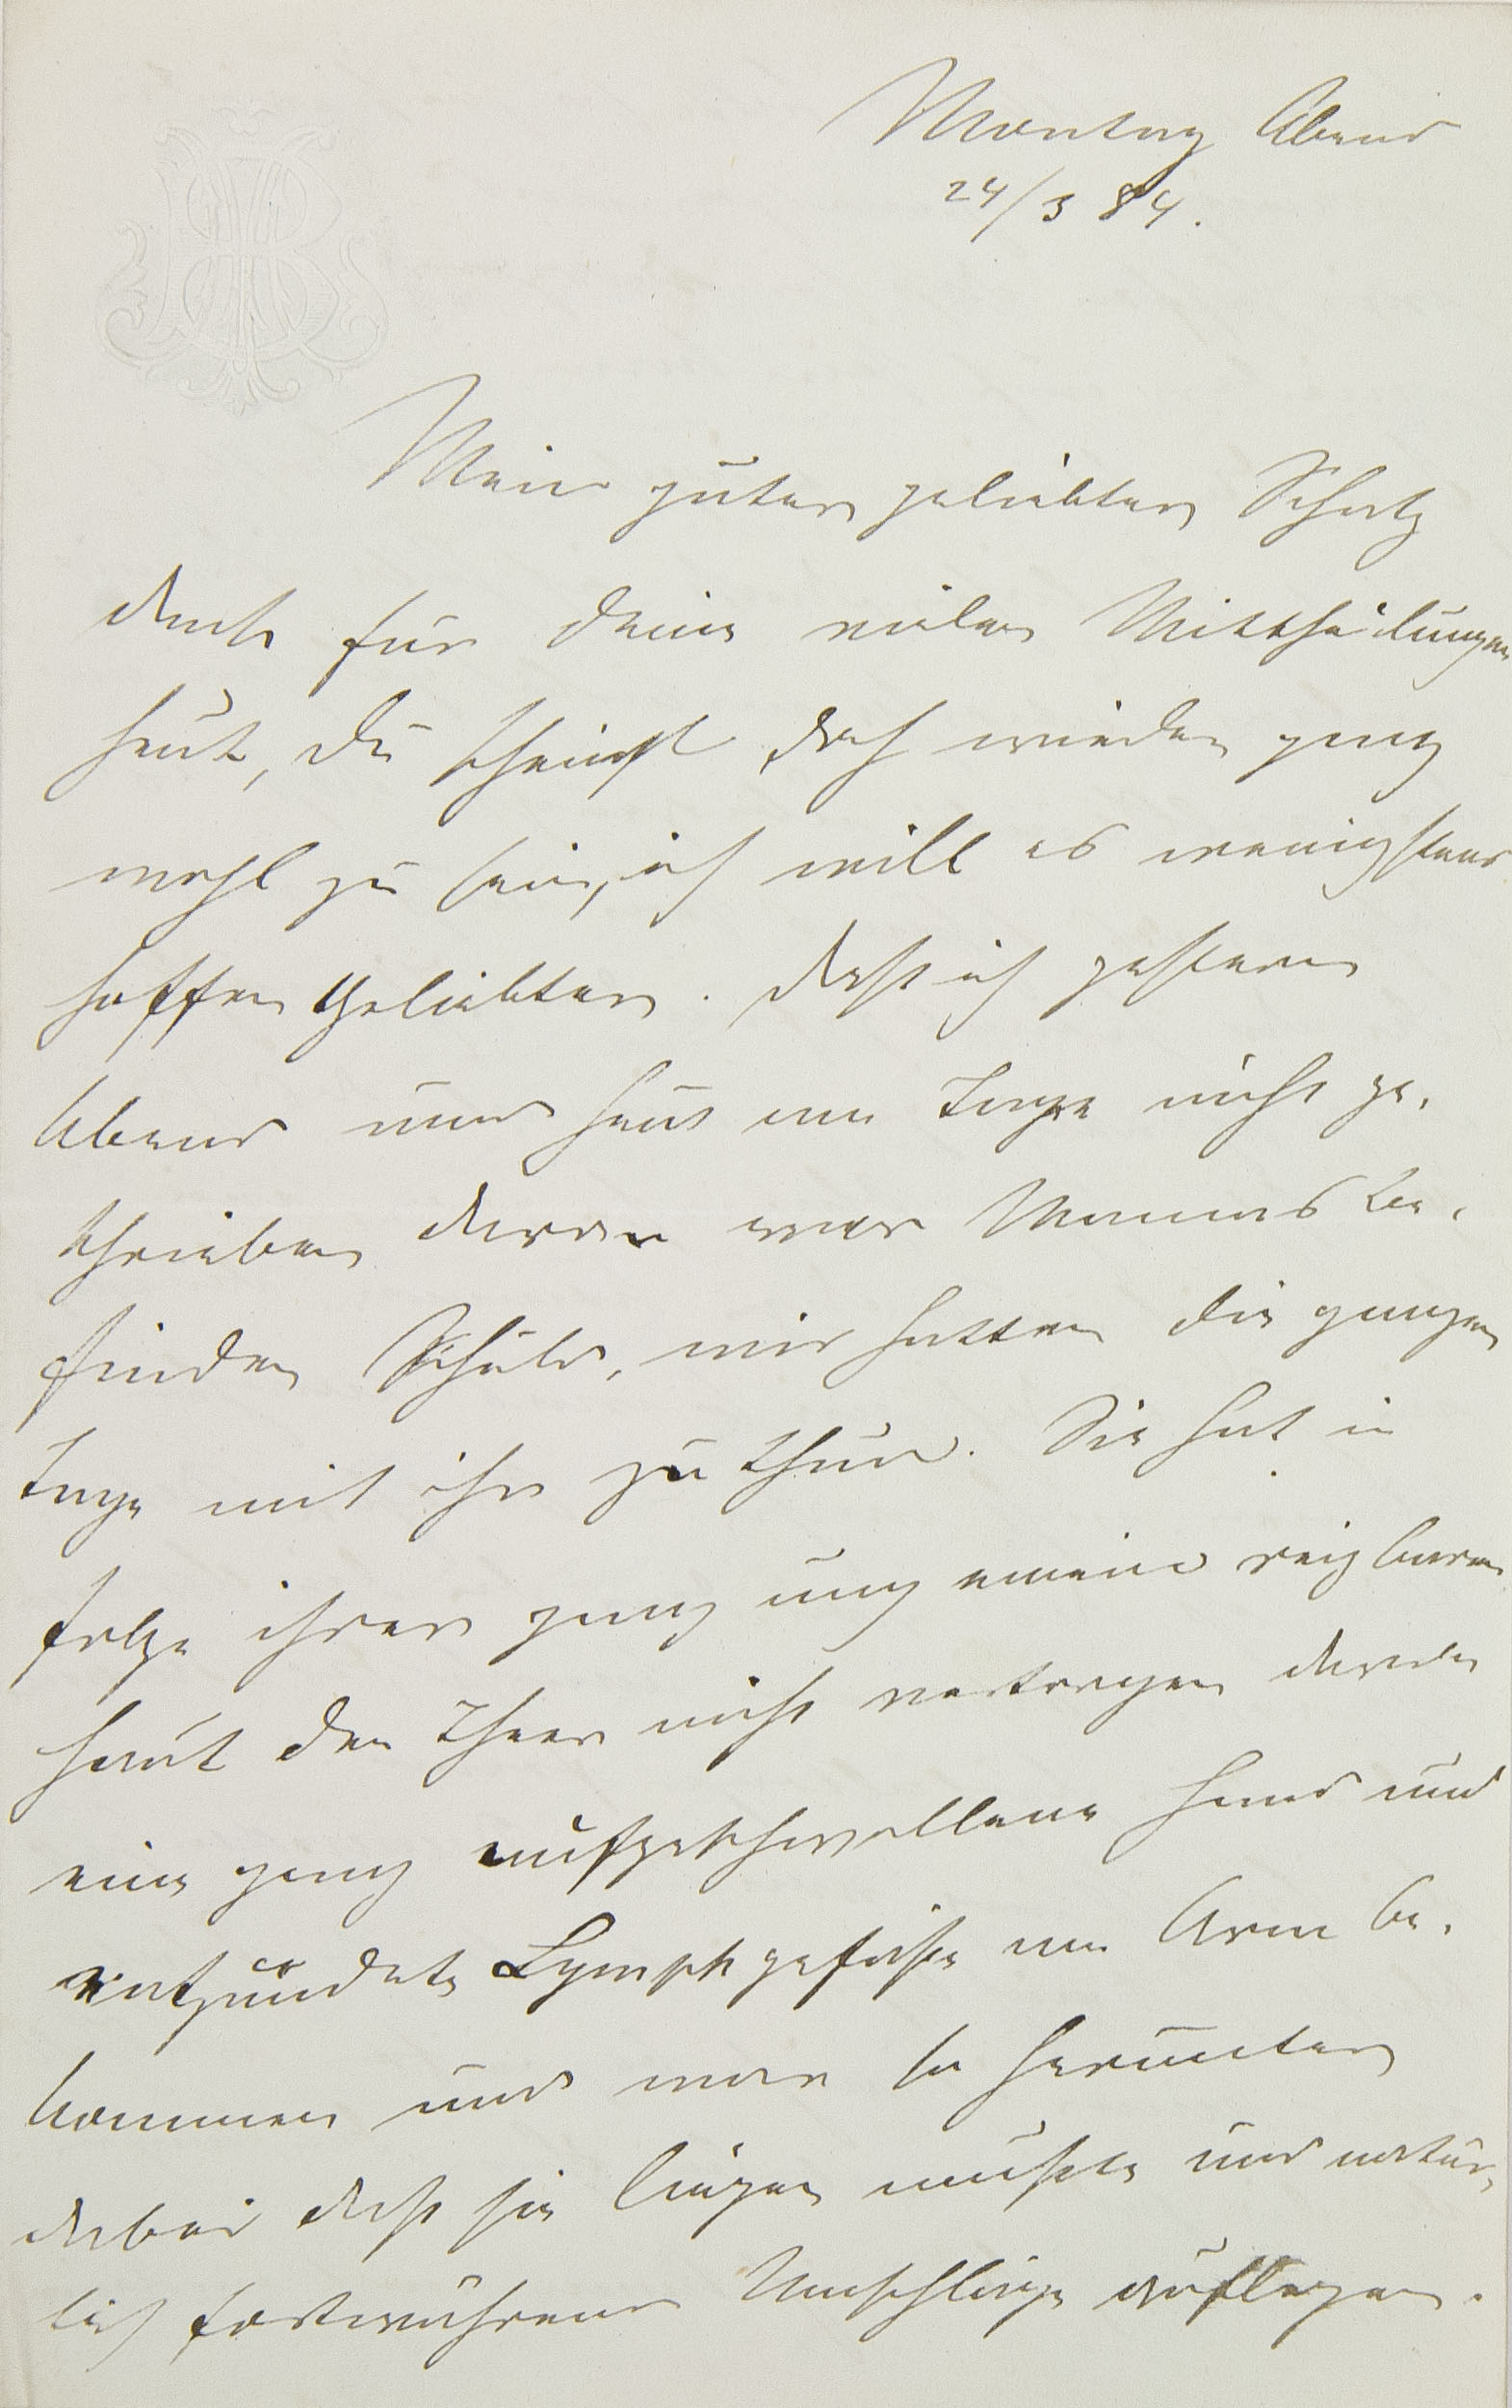 Montag Abend
24/3 84.
Mein guter geliebter Schatz
dank für deine vielen Mittheilungen
heut, du scheinst doch wieder ganz
wohl zu sein, ich will es wenigstens
hoffen Geliebter. Daß ich gestern
Abend und heut am Tage nicht ge-
schrieben daran war Mamas Be-
finden Schuld, wir hatten die ganzen
Tage mit ihr zu thun. Sie hat in
folge ihrer ganz ungemein reizbaren
Haut den Theer nicht vertragen
eine ganz aufgeschwollene Hand und
entzündete Lymphgefäße am Arm be-
kommen und war so herunter
dabei daß sie liegen mußte und natür-
lich fortwährend Umschläge auflegen.